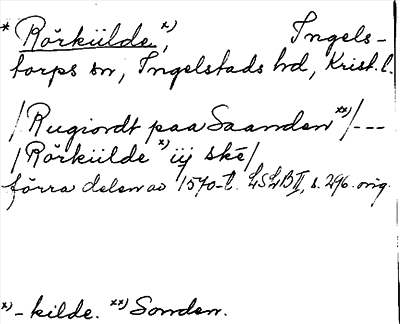 * Rörkiilde *), Ingels-
torps sn, Ingelstads hd, Krist. l.
/Rugiordt paa Saanden **)/---
/Rörkiilde *) iij ske/
förra delen av 1570-t. LSLB II, s. 296. orig.
*) - kilde. **) Sonden.